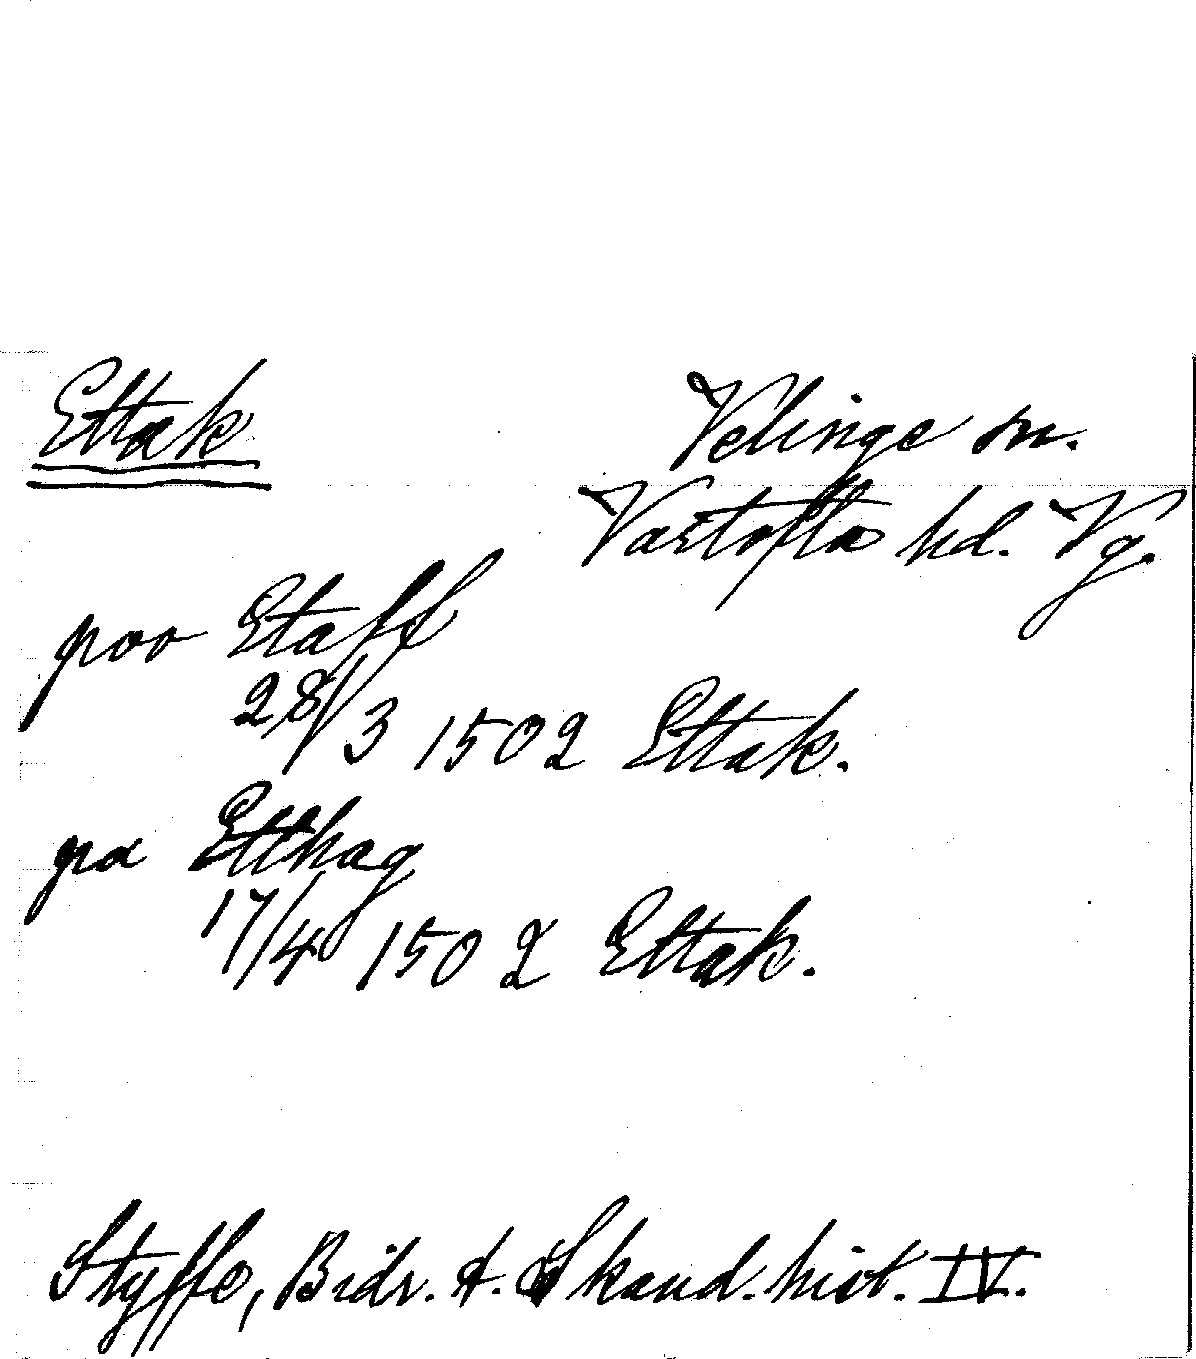 Ettak
Velinge sn.
Vartofta hd. Vg.
poo Etaff
28/3 1502 Ettak.
pa Etthag
17/4 1502 Ettak.
Styffe, Bidr. t. Skand. hist. IV.